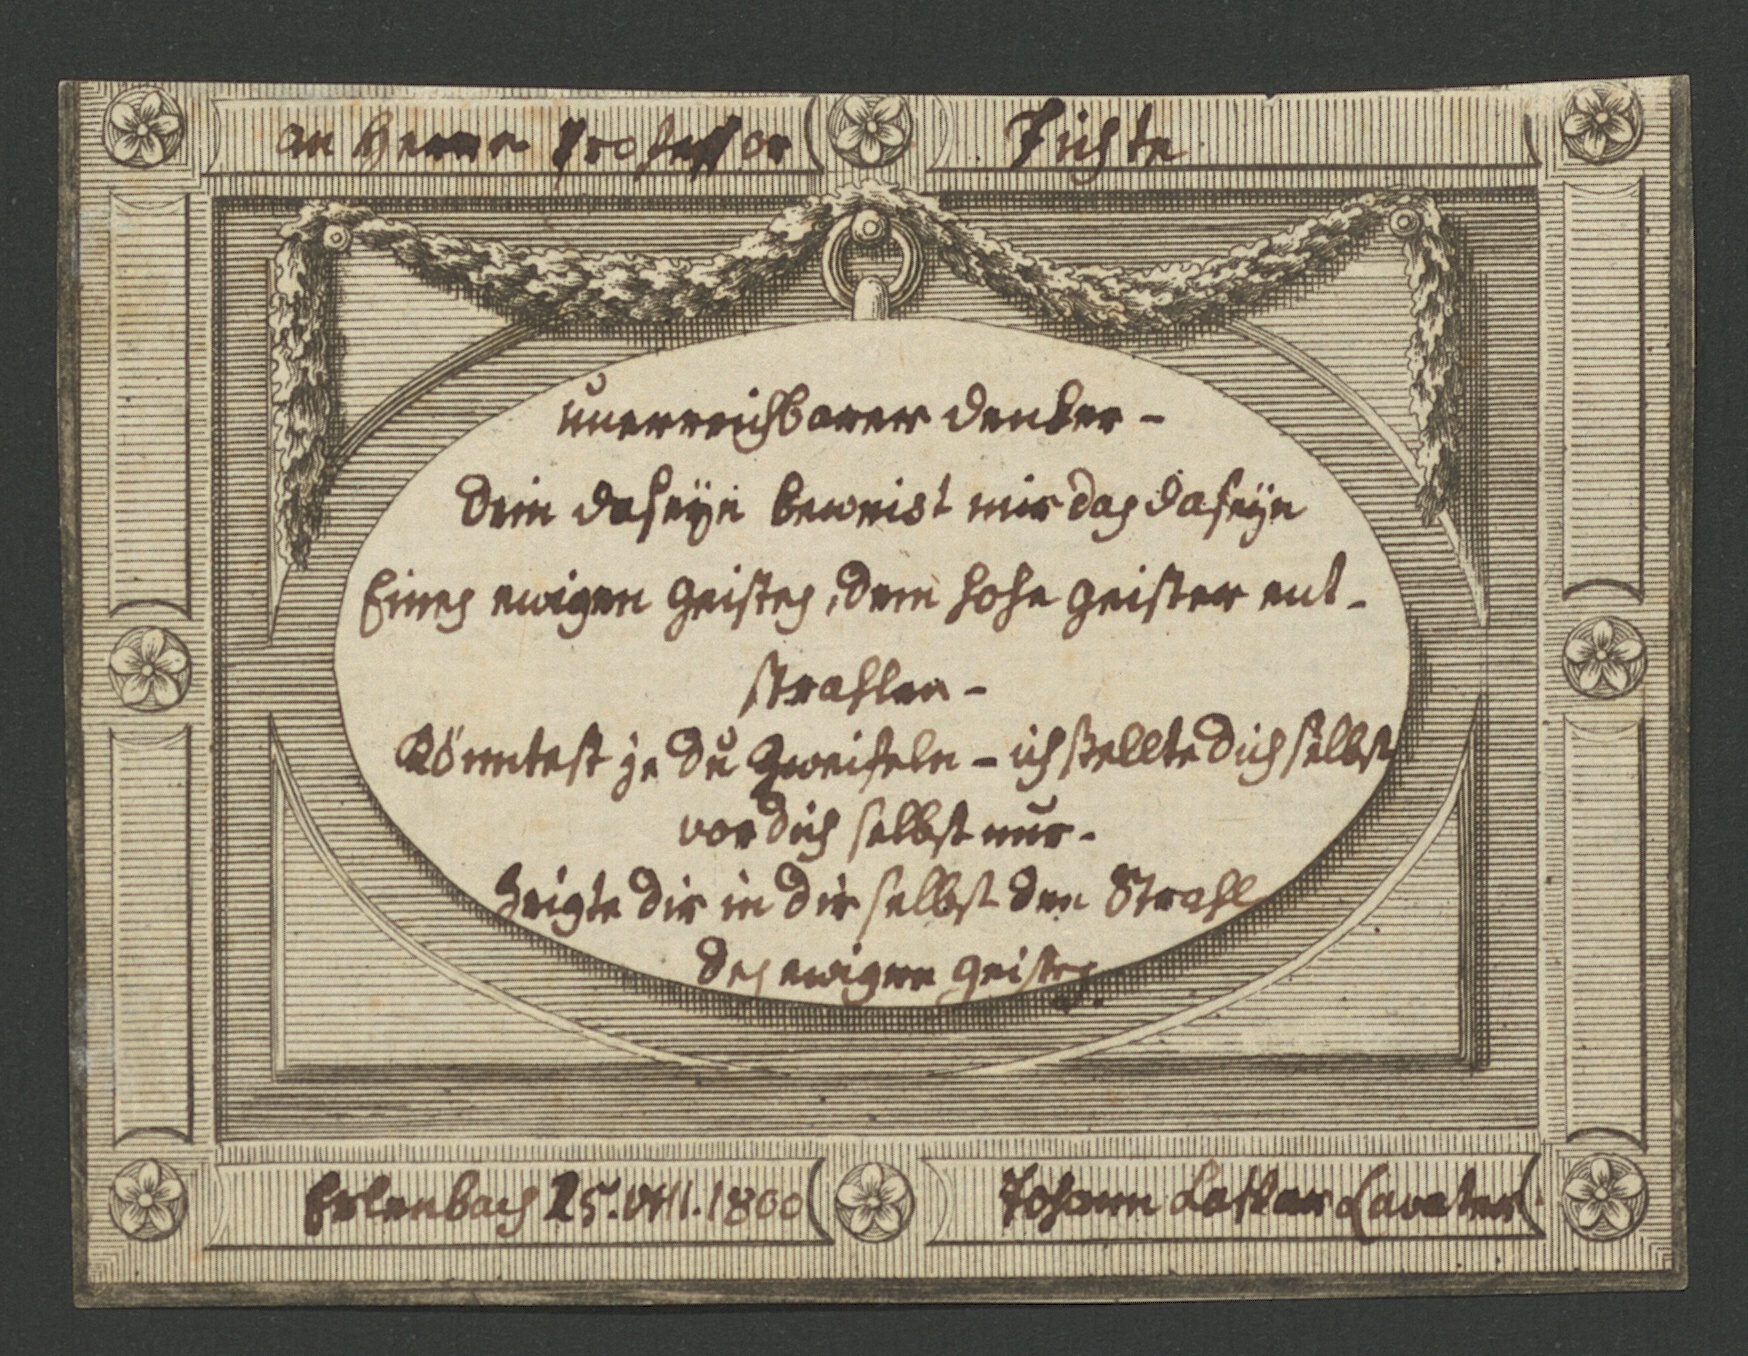 an Herrn Professor Fichte
Unerreichbarer Denker -
Dein daseÿn beweist mir das daseÿn
Eines ewigen Geistes, dem hohe Geister ent-
strahlen -
Könntest je du zweifeln - ich stellte dich selbst
vor dich selbst nur -
Zeigte dir in dir selbst den Strahl
des ewigen Geistes.
Erlenbach 25. VIII. 1800
Johann Caspar Lavater.